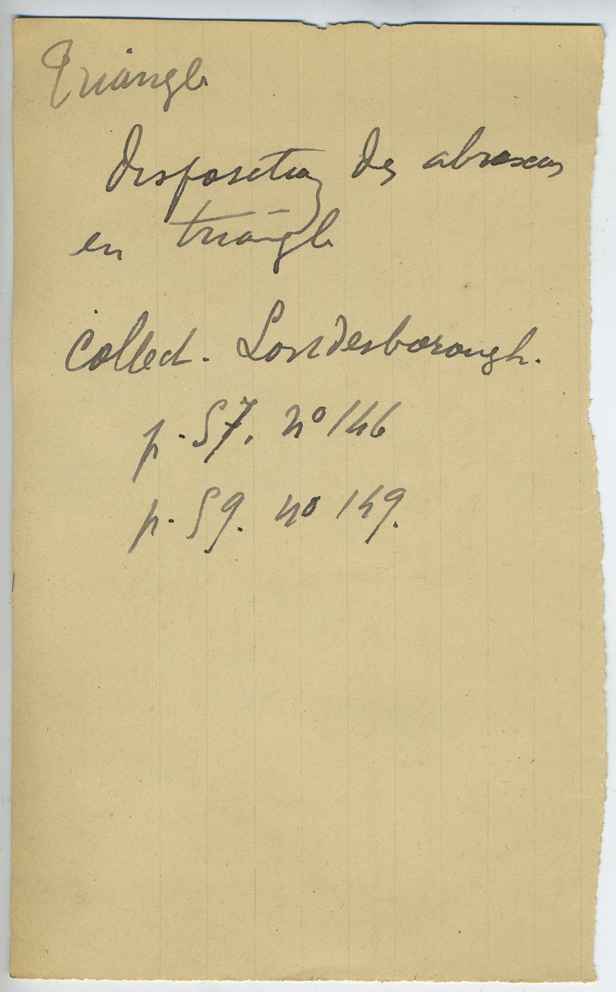 Triangle
disposition des abraxas
en triangle
Collect. Londesborough.
p. 57. nº 146
p. 59. nº 149.